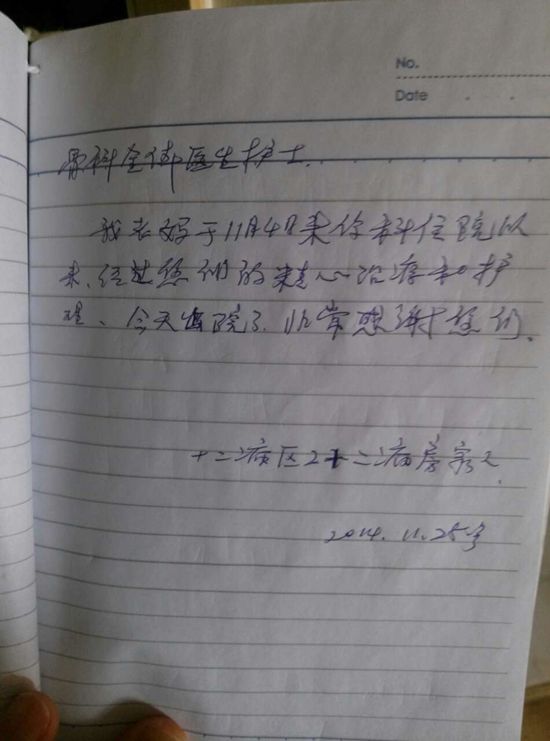 No.
Date
骨科全体医生护士.
我老妈于11月4日来你科住院以
来、经过您们的精心治疗和护
理、今天出院了.非常感谢您们.
十二病区2十二病房家人
2014.11.25号